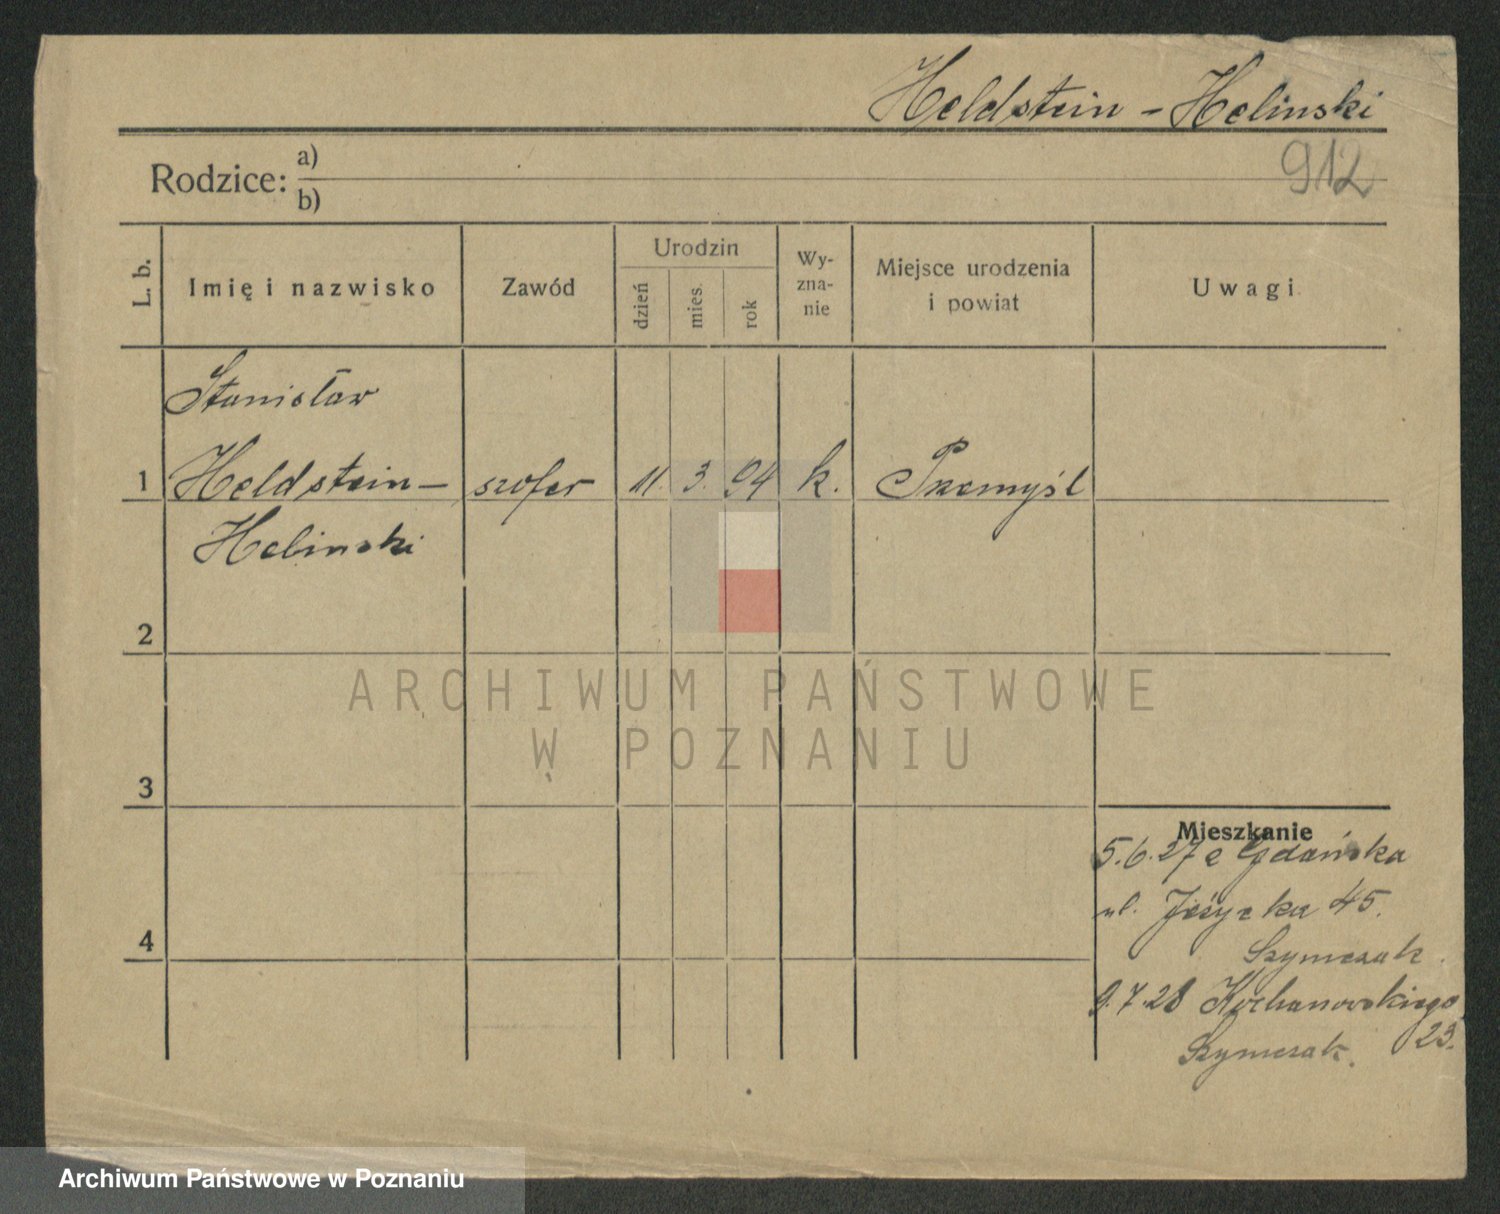 Heldstein - Helinski
912
Rodzice: a)
b)
L. b.
Imię i nazwisko
Zawód
Urodzin
dzień
mies.
rok
Wy-
zna-
nie
Miejsce urodzenia
i powiat
Uwagi
Stanisław
1 Heldstein - szofer 11. 3. 94 k. Przemyśl
Helinski
2
ARCHIWUM PAŃSTWOWE
W POZNANIU
3
Mieszkanie
5.6.27 z Gdańska
ul. 45.
4
Szymczak.
9.7.28 Kochanowskiego
23.
Szymczak.
Archiwum Państwowe w Poznaniu